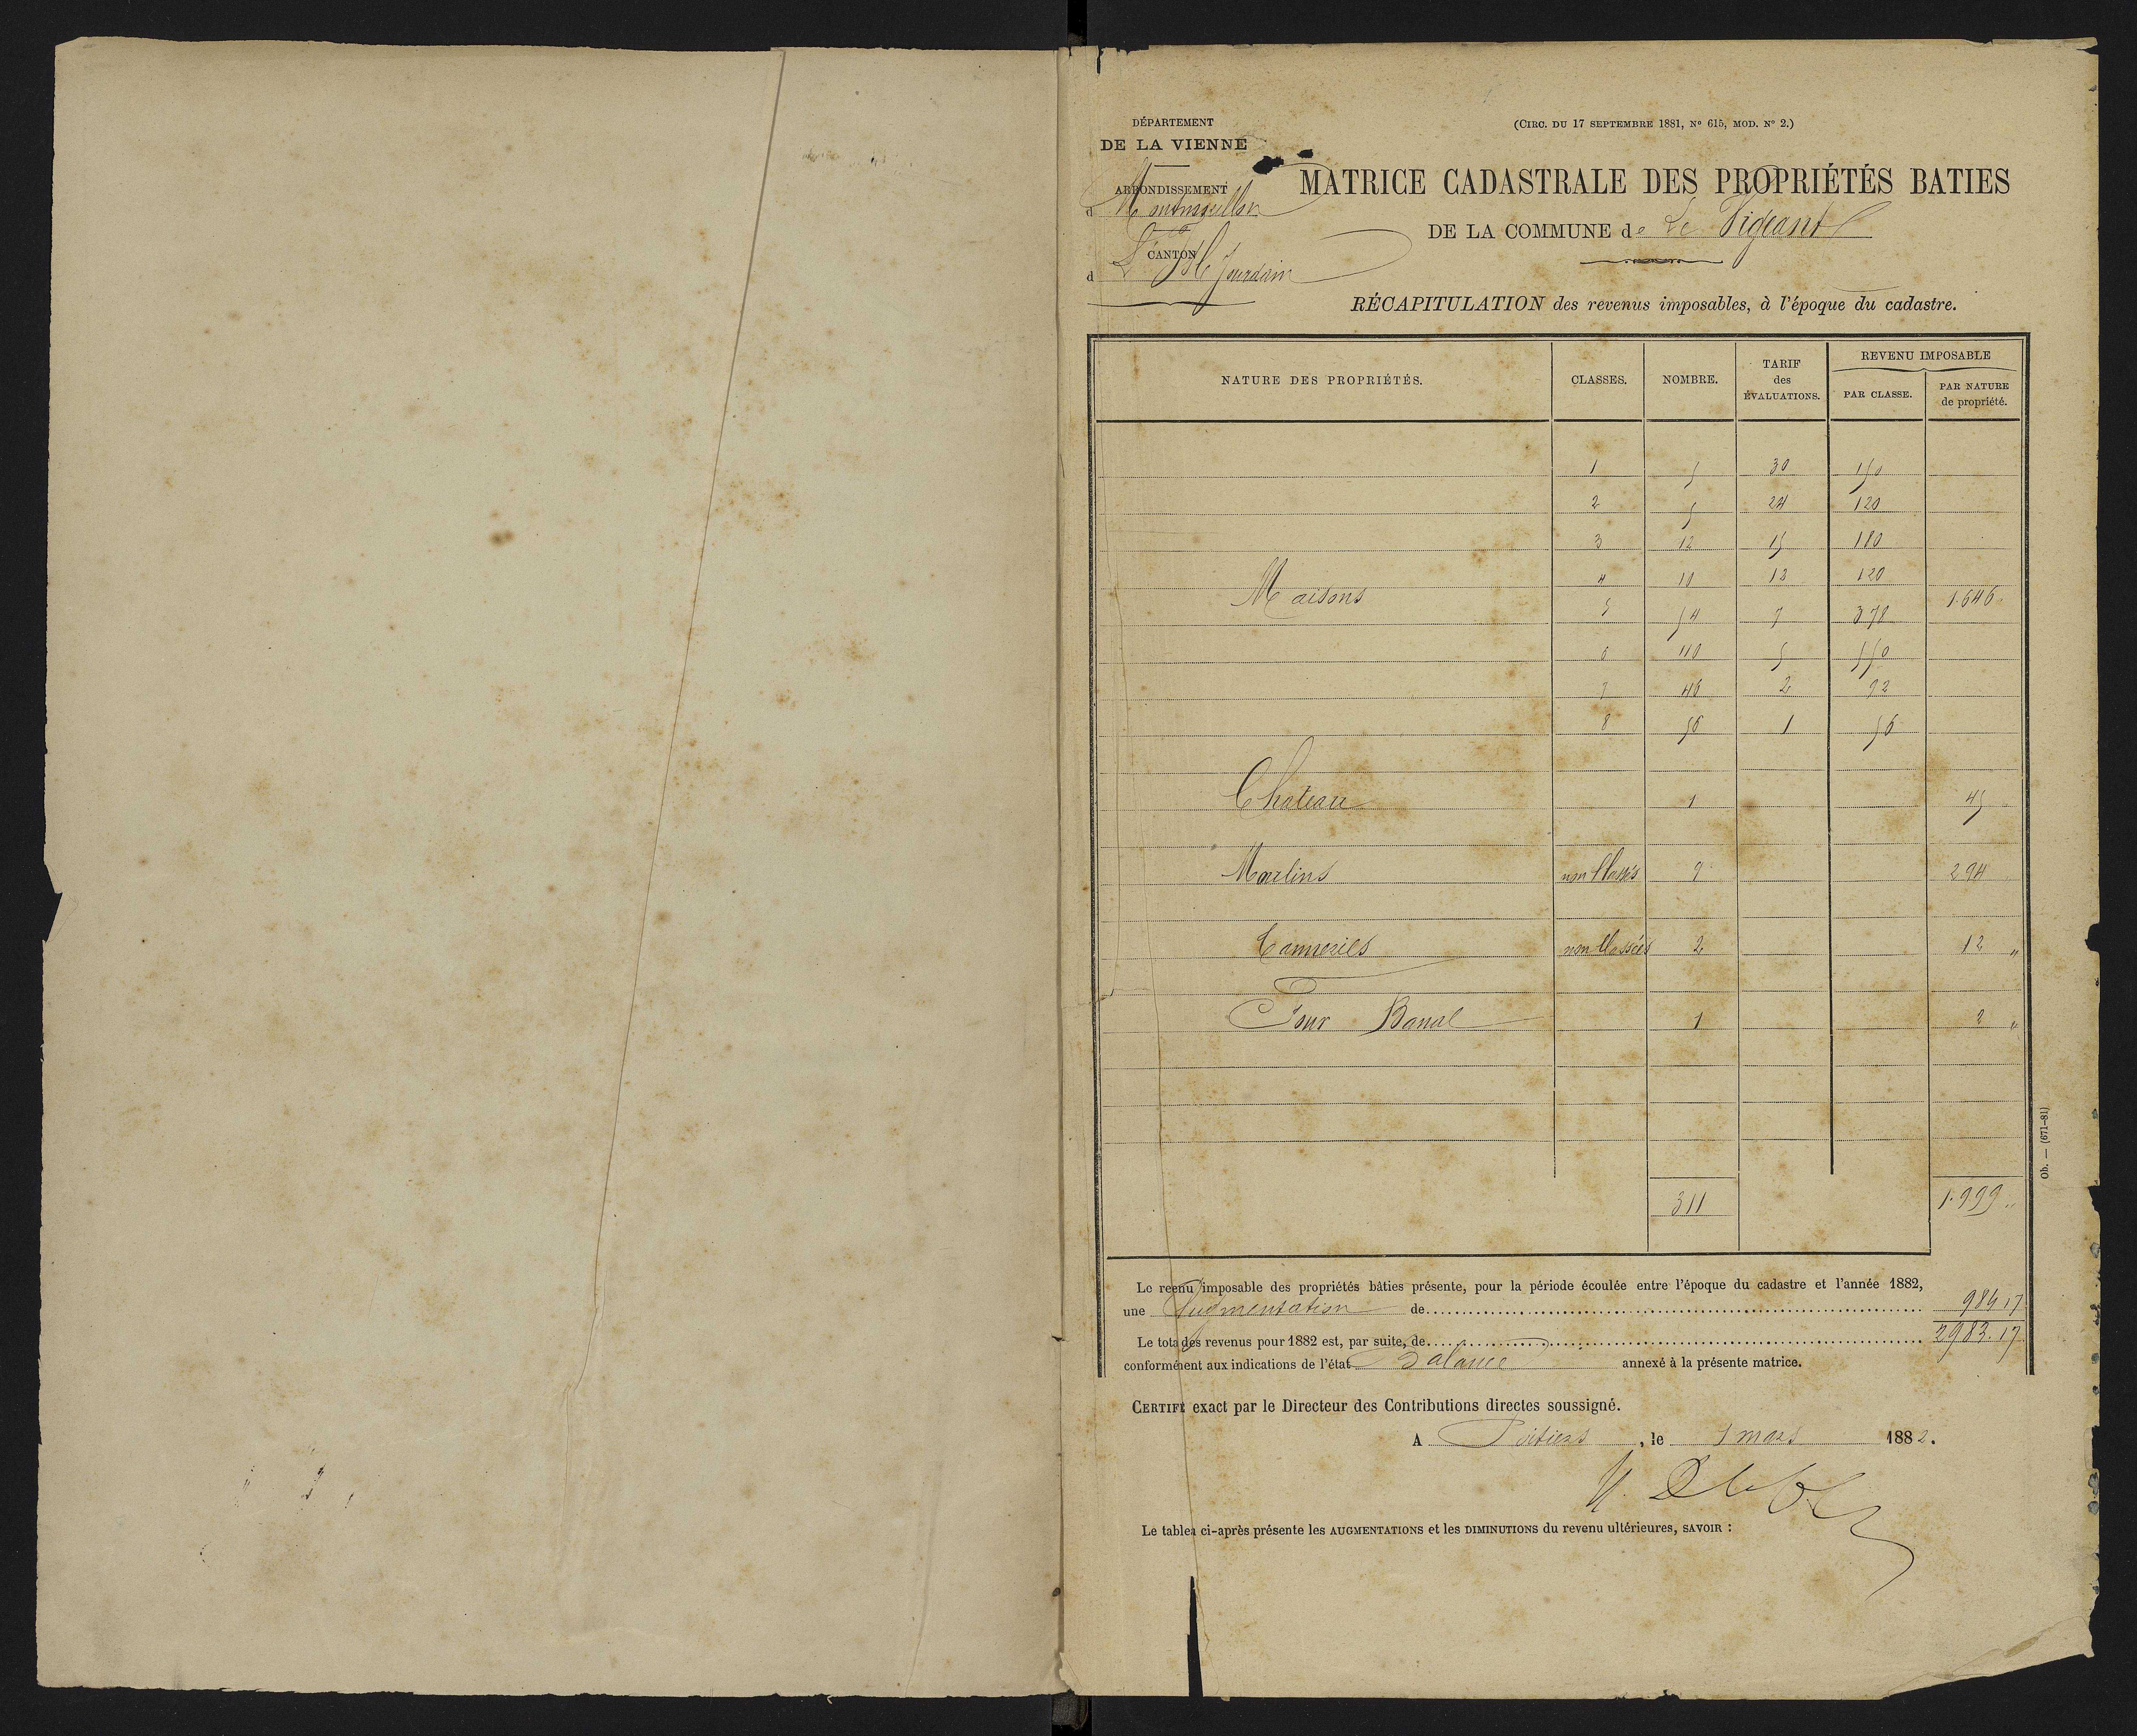 DÉPARTEMENT
DE LA VIENNE
(CIRC. DU 17 SEPTEMBRE 1881, N° 615, MOD. N° 2.)
ARRONDISSEMENT
d Montmorillon
CANTON
d L'Isle Jourdain
MATRICE CADASTRALE DES PROPRIÉTÉS BATIES
DE LA COMMUNE de Le Vigeant
RÉCAPITULATION des revenus imposables, à l'époque du cadastre.
NATURE DES PROPRIÉTÉS. CLASSES. NOMBRE. TARIF des ÉVALUATIONS. REVENU IMPOSABLE PAR CLASSE. PAR NATURE de propriété.
1 5 30 150
2 5 24 120
3 12 15 180
4 10 12 120
Maisons 1.646
5 54 7 378
6 110 5 550
7 46 2 92
8 56 1 56
Chateau 1 45
Moulins non Classés 9 294
Tanneries non Classées 2 12 "
Four Banal 1 2 "
311 1.999 "
Le reenu imposable des propriétés bâties présente, pour la période écoulée entre l'époque du cadastre et l'année 1882,
une Augmentation de 984.17
Le tota des revenus pour 1882 est, par suite, de 2983.17
conforménent aux indications de l'état Balance annexé à la présente matrice.
CERTIFI exact par le Directeur des Contributions directes soussigné.
A Poitiers, le mars 1882.
Le tablea ci-après présente les AUGMENTATIONS et les DIMINUTIONS du revenu ultérieures, SAVOIR :
Ob. — (671-81)